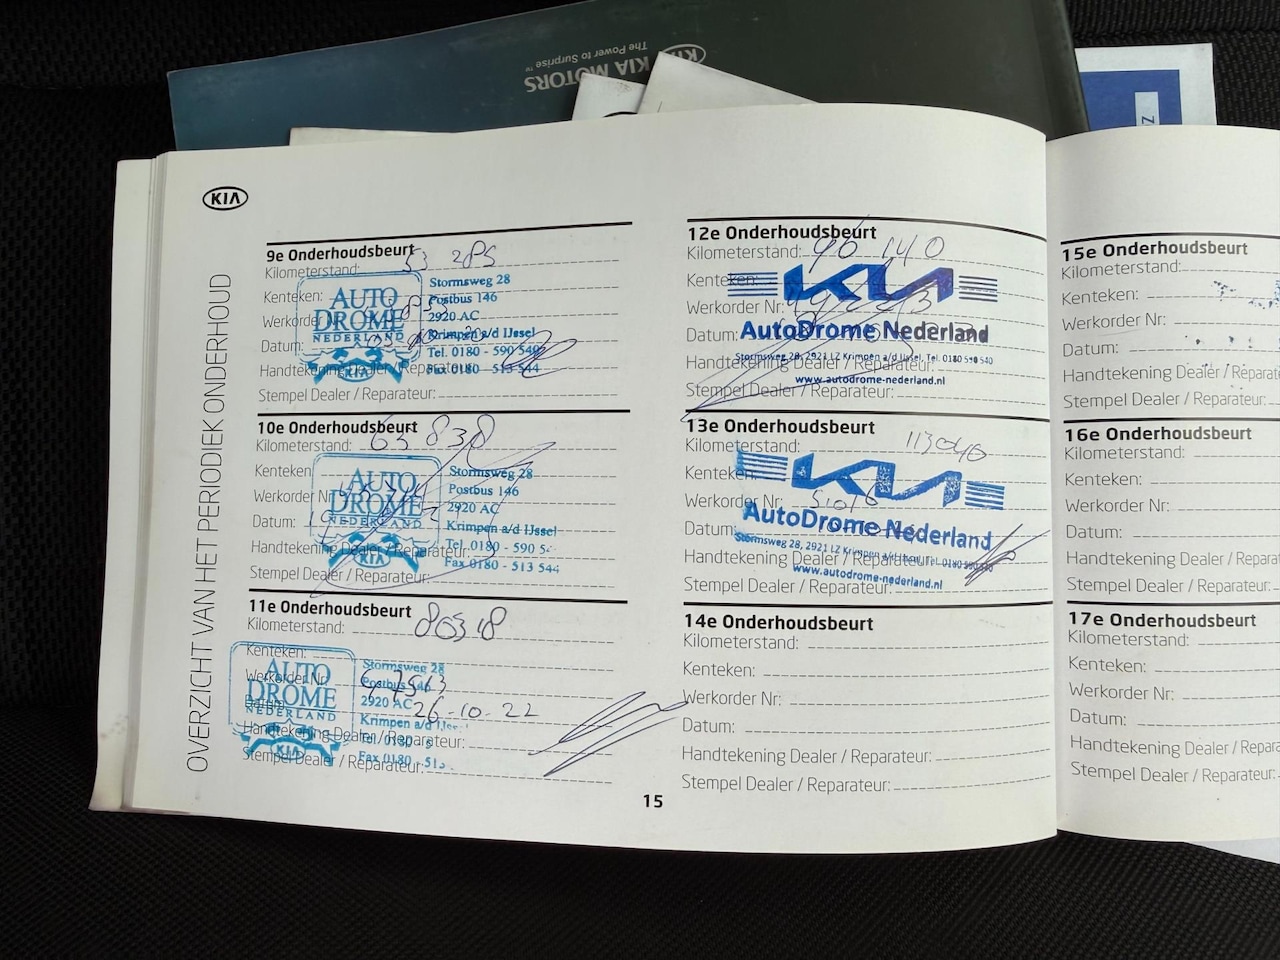 KIA MOTORS
The Power to Surprise™
KIA
OVERZICHT VAN HET PERIODIEK ONDERHOUD
9e Onderhoudsbeurt
Kilometerstand: 53 285
Kenteken:
Werkorder
Datum:
Handtekening Dealer / Reparateur:
Stempel Dealer / Reparateur:
AUTO
DROME
NEDERLAND
KIA
Stormsweg 28
Postbus 146
2920 AC
Krimpen a/d IJssel
Tel. 0180 - 590 540
Fax 0180 - 513 544
10e Onderhoudsbeurt
Kilometerstand: 63 838
Kenteken
Werkorder Nr
Datum:
Handtekening Dealer / Reparateur:
Stempel Dealer / Reparateur:
AUTO
DROME
NEDERLAND
KIA
Stormsweg 28
Postbus 146
2920 AC
Krimpen a/d IJssel
Tel. 0180 - 590 5
Fax 0180 - 513 544
11e Onderhoudsbeurt
Kilometerstand: 80318
Kenteken:
Werkorder Nr
Datum: 26-10-22
Handtekening Dealer / Reparateur:
Stempel Dealer / Reparateur:
AUTO
DROME
NEDERLAND
KIA
Stormsweg 28
Postbus 146
2920 AC
Krimpen a/d
Tel. 0180
Fax 0180 - 513
15
12e Onderhoudsbeurt
Kilometerstand: 96 140
Kenteken:
Werkorder Nr:
Datum:
Handtekening Dealer / Reparateur:
Stempel Dealer / Reparateur:
KIA
AutoDrome Nederland
Stormsweg 28, 2921 LZ Krimpen a/d IJssel, Tel. 0180 590 540
www.autodrome-nederland.nl
13e Onderhoudsbeurt
Kilometerstand: 113040
Kenteken
Werkorder Nr: 51016
Datum:
Handtekening Dealer / Reparateur:
Stempel Dealer / Reparateur:
KIA
AutoDrome Nederland
Stormsweg 28, 2921 LZ Krimpen a/d IJssel, Tel. 0180 590 540
www.autodrome-nederland.nl
14e Onderhoudsbeurt
Kilometerstand:
Kenteken:
Werkorder Nr:
Datum:
Handtekening Dealer / Reparateur:
Stempel Dealer / Reparateur:
15e Onderhoudsbeurt
Kilometerstand:
Kenteken:
Werkorder Nr:
Datum:
Handtekening Dealer / Reparat
Stempel Dealer / Reparateur:
16e Onderhoudsbeurt
Kilometerstand:
Kenteken:
Werkorder Nr:
Datum:
Handtekening Dealer / Reparate
Stempel Dealer / Reparateur:
17e Onderhoudsbeurt
Kilometerstand:
Kenteken:
Werkorder Nr:
Datum:
Handtekening Dealer / Repara
Stempel Dealer / Reparateur: